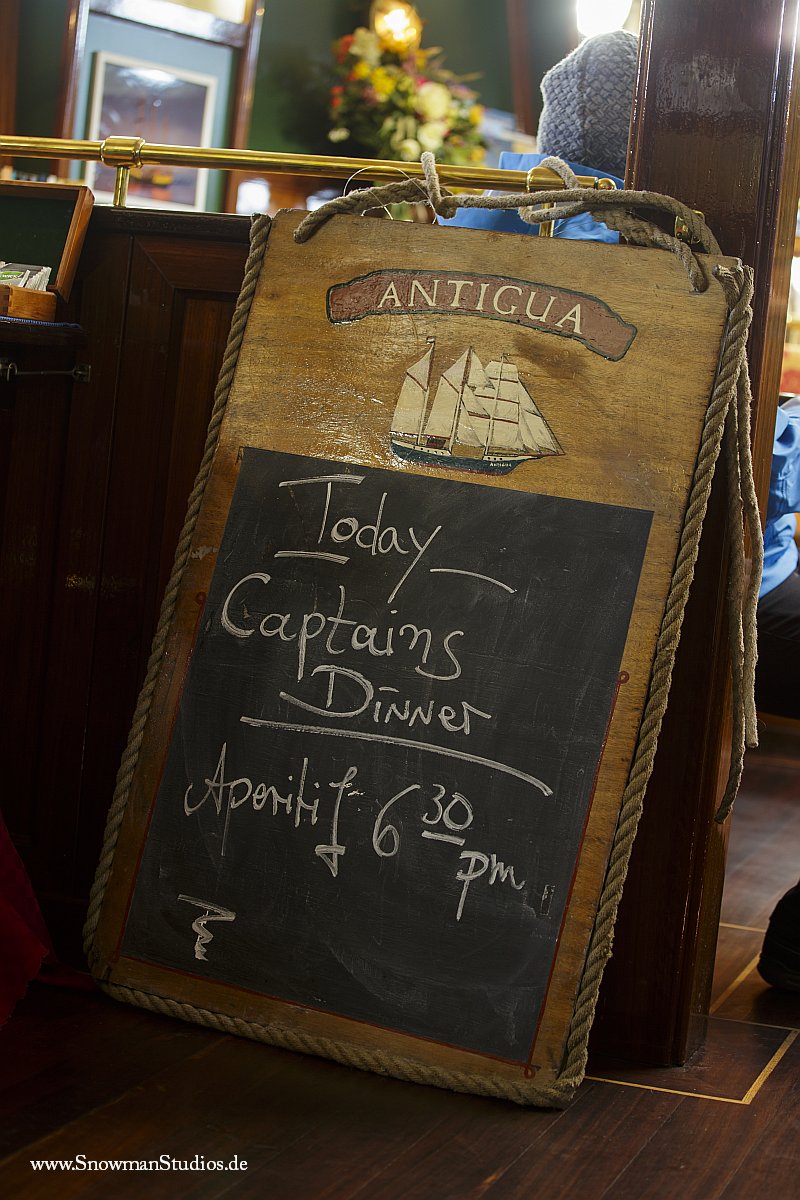 ANTIGUA
ANTIGUA
Today
Captains
Dinner
Aperitif 6 30 pm
www.SnowmanStudios.de